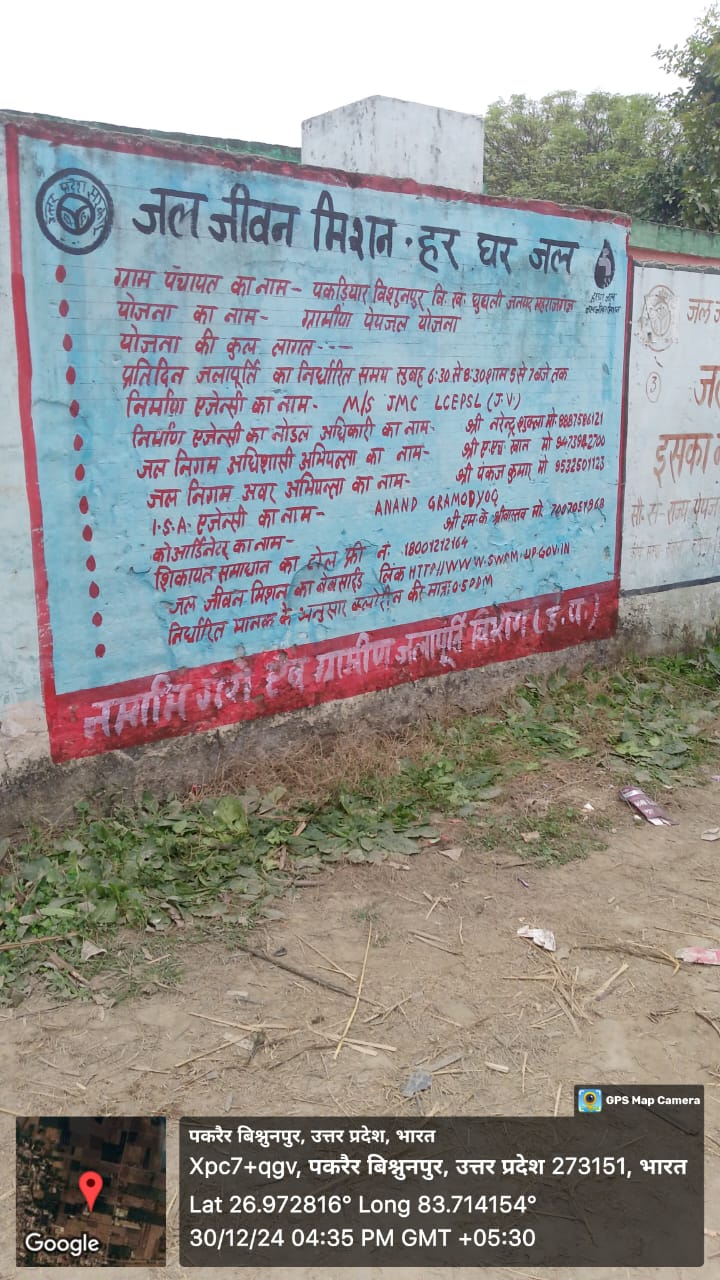 उत्तर प्रदेश सरकार
जल जीवन मिशन · हर घर जल
हर घर जल
जल जीवन मिशन
ग्राम पंचायत का नाम- पकडियार विशुनपुर वि. ख. घुघली जनपद महराजगंज
योजना का नाम- ग्रामीण पेयजल योजना
योजना की कुल लागत---
प्रतिदिन जलापूर्ति का निर्धारित समय सुबह 6:30 से 8:30 शाम 5 से 7 बजे तक
निर्माण एजेन्सी का नाम- M/S JMC LCEPSL (J.V.)
निर्माण एजेन्सी का नोडल अधिकारी का नाम- श्री नरेन्द्र शुक्ला मो. 8887586121
जल निगम अधिशासी अभियन्ता का नाम- श्री ए.एच. खान मो 9473942700
जल निगम अवर अभियन्ता का नाम- श्री पंकज कुमार मो 9532501123
I.S.A. एजेन्सी का नाम- ANAND GRAMODYOG
कोआर्डिनेटर का नाम- श्री एम.के श्रीवास्तव मो. 7007051968
शिकायत समाधान का टोल फ्री नं. 18001212164
जल जीवन मिशन का वेबसाईड लिंक HTTP//WWW.SWSM.UP.GOV.IN
निर्धारित मानक के अनुसार क्लोरीन की मात्रा 0.5PPM
नमामि गंगे एंव ग्रामीण जलापूर्ति विभाग (उ.प्र.)
जल
3
इसका
GPS Map Camera
पकरैर बिश्नुनपुर, उत्तर प्रदेश, भारत
Xpc7+qgv, पकरैर बिश्नुनपुर, उत्तर प्रदेश 273151, भारत
Lat 26.972816° Long 83.714154°
30/12/24 04:35 PM GMT +05:30
Google